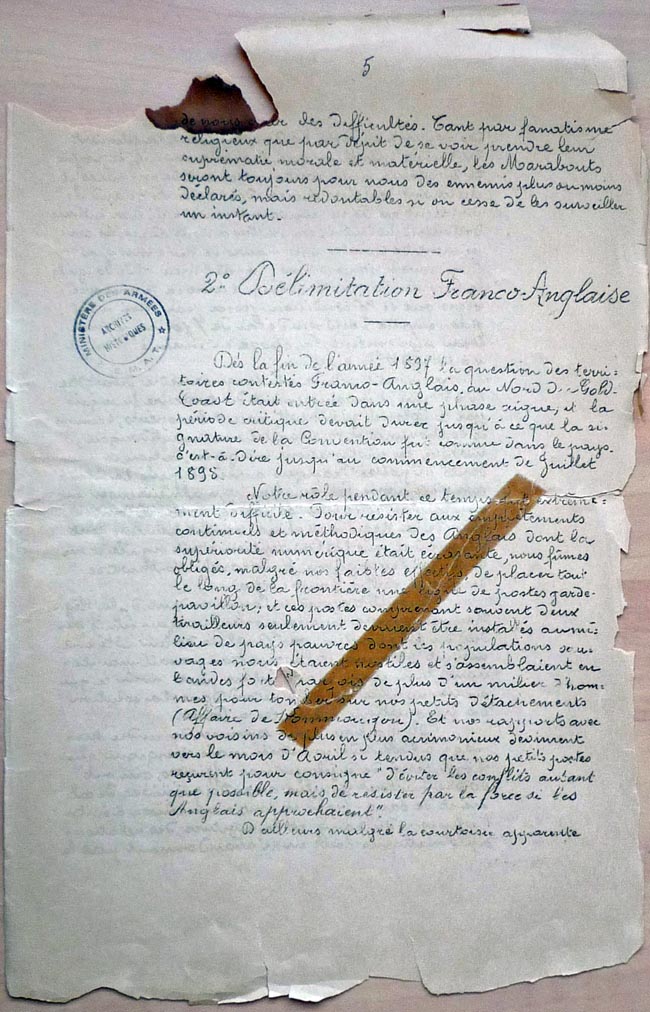 5
des difficultés. Tant par fanatisme
religieux que par dépit de se voir prendre leur
suprématie morale et matérielle, les Marabouts
seront toujours pour nous des ennemis plus ou moins
déclarés, mais redoutables si on cesse de les surveiller
un instant.
2º Délimitation Franco-Anglaise
MINISTÈRE DES ARMÉES
ARCHIVES
HISTORIQUES
Dès la fin de l'année 1897 la question des terri-
toires contestés Franco-Anglais, au Nord de Gold-
Coast était entrée dans une phase aigue, et la
période critique devait durer jusqu'à ce que la si-
gnature de la Convention fut connue dans le pays
c'est-à-Dire jusqu'au commencement de Juillet
1898.
Notre rôle pendant ce temps fut extrême-
ment difficile. Pour résister aux empiètements
continuels et méthodiques des Anglais dont la
supériorité numérique était écrasante, nous fûmes
obligés, malgré nos faibles effectifs, de placer tout
le long de la frontière une ligne de postes garde-
pavillon; et ces postes comprenant souvent deux
tirailleurs seulement devaient être installés au mi-
lieu de pays pauvres dont les populations sau-
vages nous étaient hostiles et s'assemblaient en
bandes parfois de plus d'un milier d'hom-
mes pour tomber sur nos petits détachements
(Affaire de ). Et nos rapports avec
nos voisins de plus en plus acrimonieux devinrent
vers le mois d'Avril si tendus que nos petits postes
reçurent pour consigne "d'éviter les conflits autant
que possible, mais de résister par la force si les
Anglais approchaient".
D'ailleurs malgré la courtoisie apparente